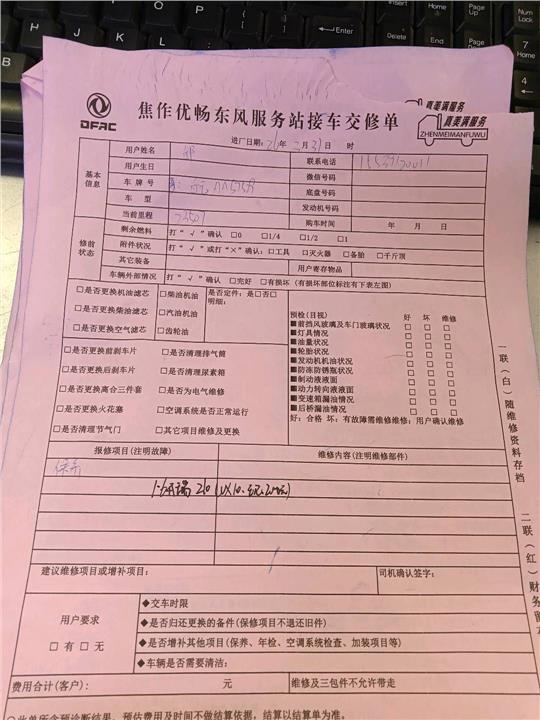 Enter
Page Up
End
Page Down
7 Home
4
DFAC
焦作优畅东风服务站接车交修单
真美满服务
真美满服务
ZHENMEIMANFUWU
进厂日期: 年 月31日 时
基本信息
用户姓名
联系电话
用户生日
微信号码
车牌号
底盘号码
车 型
发动机号码
当前里程
购车时间 年 月 日
修前状态
剩余燃料 打“√”确认 □0 □1/4 □1/2 □1
附件状况 打“√”或打“×”确认:□工具 □灭火器 □备胎 □千斤顶
其它装备 用户寄存物品
车辆外部情况 打“√”确认 □完好 □有损坏(有损坏部位标注有下表左图)
□是否更换机油滤芯 □柴油机油 是否定件: 是□否□
□是否更换柴油滤芯 □汽油机油 明细:
□是否更换空气滤芯 □齿轮油
□是否更换前刹车片 □是否清理排气筒
□是否更换后刹车片 □是否清理尿素箱
□是否更换离合三件套 □是否为电气维修
□是否更换火花塞 □空调系统是否正常运行
□是否清理节气门 □其它项目维修及更换
预检(目视) 好 坏 维修
■前挡风玻璃及车门玻璃状况 □ □ □
■灯具情况 □ □ □
■油量状况 □ □ □
■轮胎状况 □ □ □
■发动机机油状况 □ □ □
■防冻防锈瓶状况 □ □ □
■制动液液面 □ □ □
■动力转向液液面 □ □ □
■变速箱漏油情况 □ □ □
■后桥漏油情况 □ □ □
好:合格 坏:有故障需维修维修:用户确认维修
报修项目(注明故障) 维修内容(注明维修部件)
保养
建议维修项目或增补项目: 司机确认签字:
用户要求
□有 □无
◆交车时限
◆是否归还更换的备件(保修项目不退还旧件)
◆是否增补其他项目(保养、年检、空调系统检查、加装项目等)
◆车辆是否需要清洁:
费用合计(客户): 元 维修及三包件不允许带走
此单所含预诊断结果、预估费用及时间不做结算依据,结算以结算单为准。
一联(白)随维修资料存档
二联(红)财务